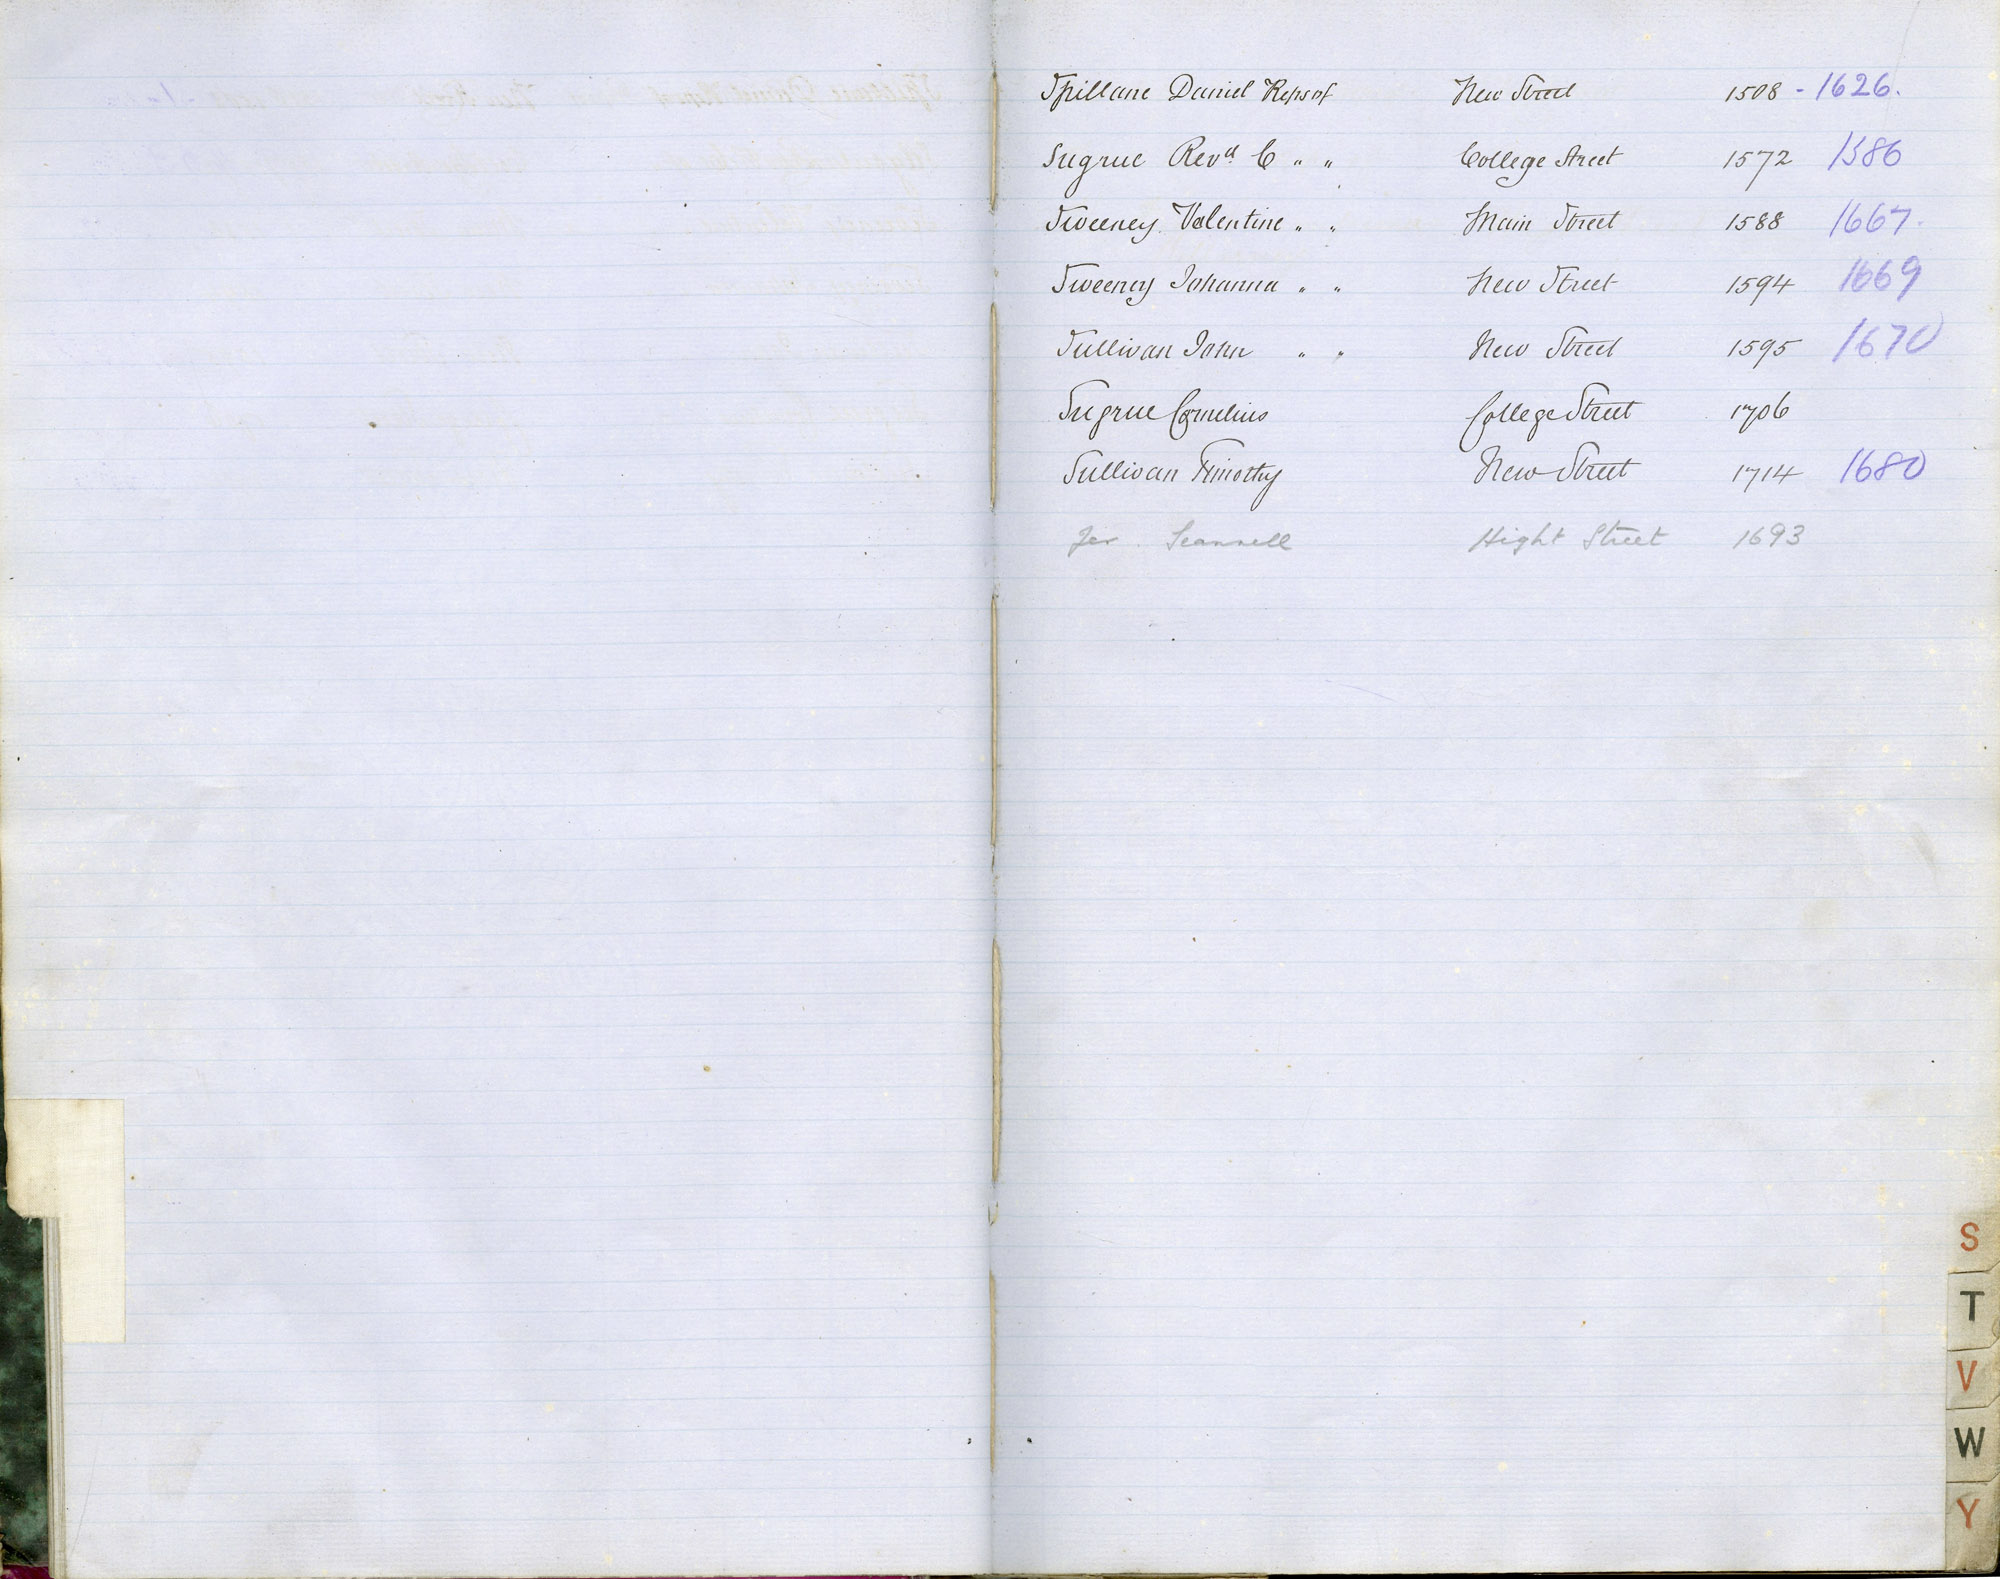 Spillane Daniel Reps of New Street 1508 - 1626.
Sugrue Revd C " " College Street 1572 1586
Sweeney Valentine " " Main Street 1588 1667.
Sweeney Johanna " " New Street 1594 1669
Sullivan John " " New Street 1595 1670
Sugrue Cornelius College Street 1706
Sullivan Timothy New Street 1714 1680
Jer. Scannell Hight Street 1693
S
T
V
W
Y